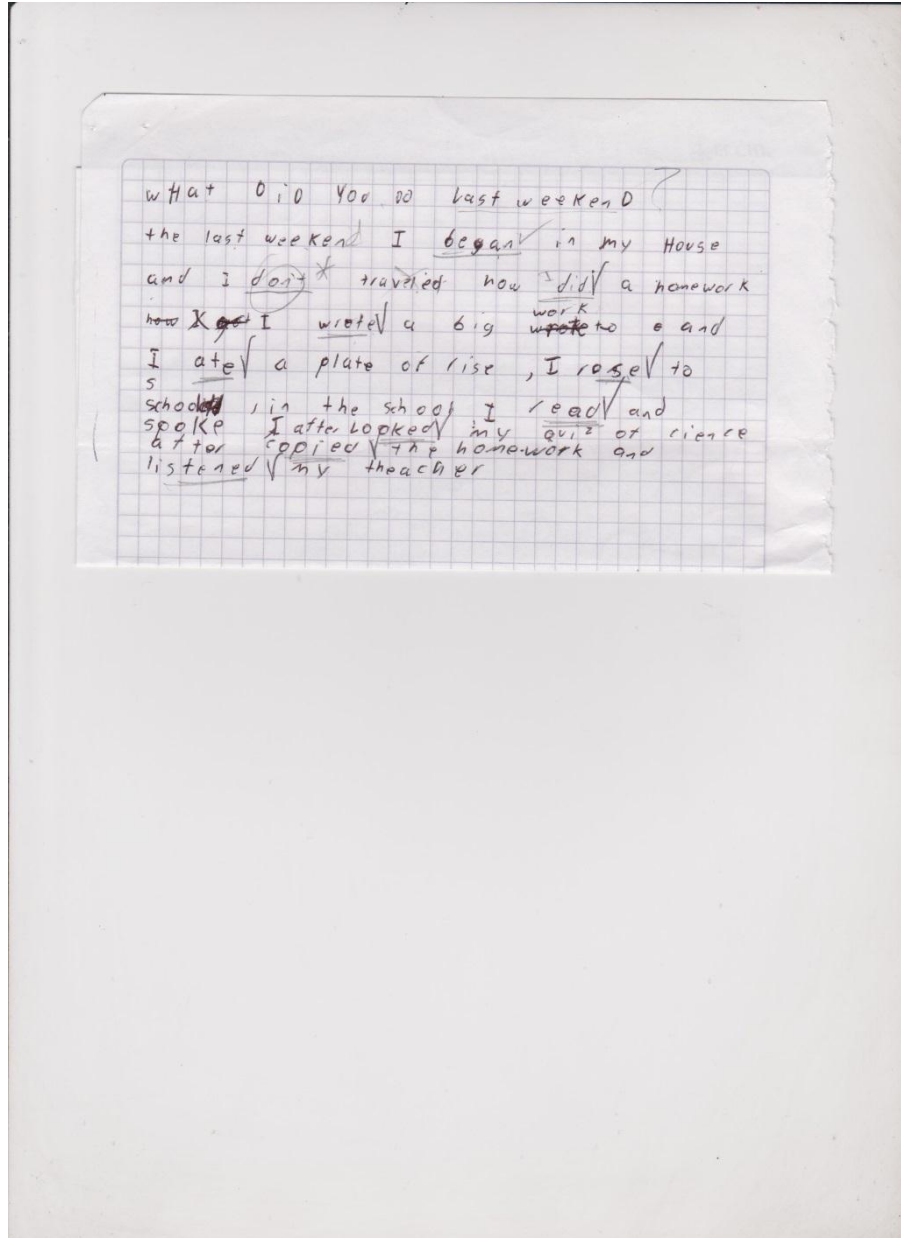 wHat DiD You Do Last weekenD ?
the last weekend I began in my House
and I don't * traveled now I did a homework
I wrote a big work and
I ate a plate of rise , I rose to
school , in the school I read and
spoke I after Looked my quiz of cience
after copied the homework and
listened my theacher